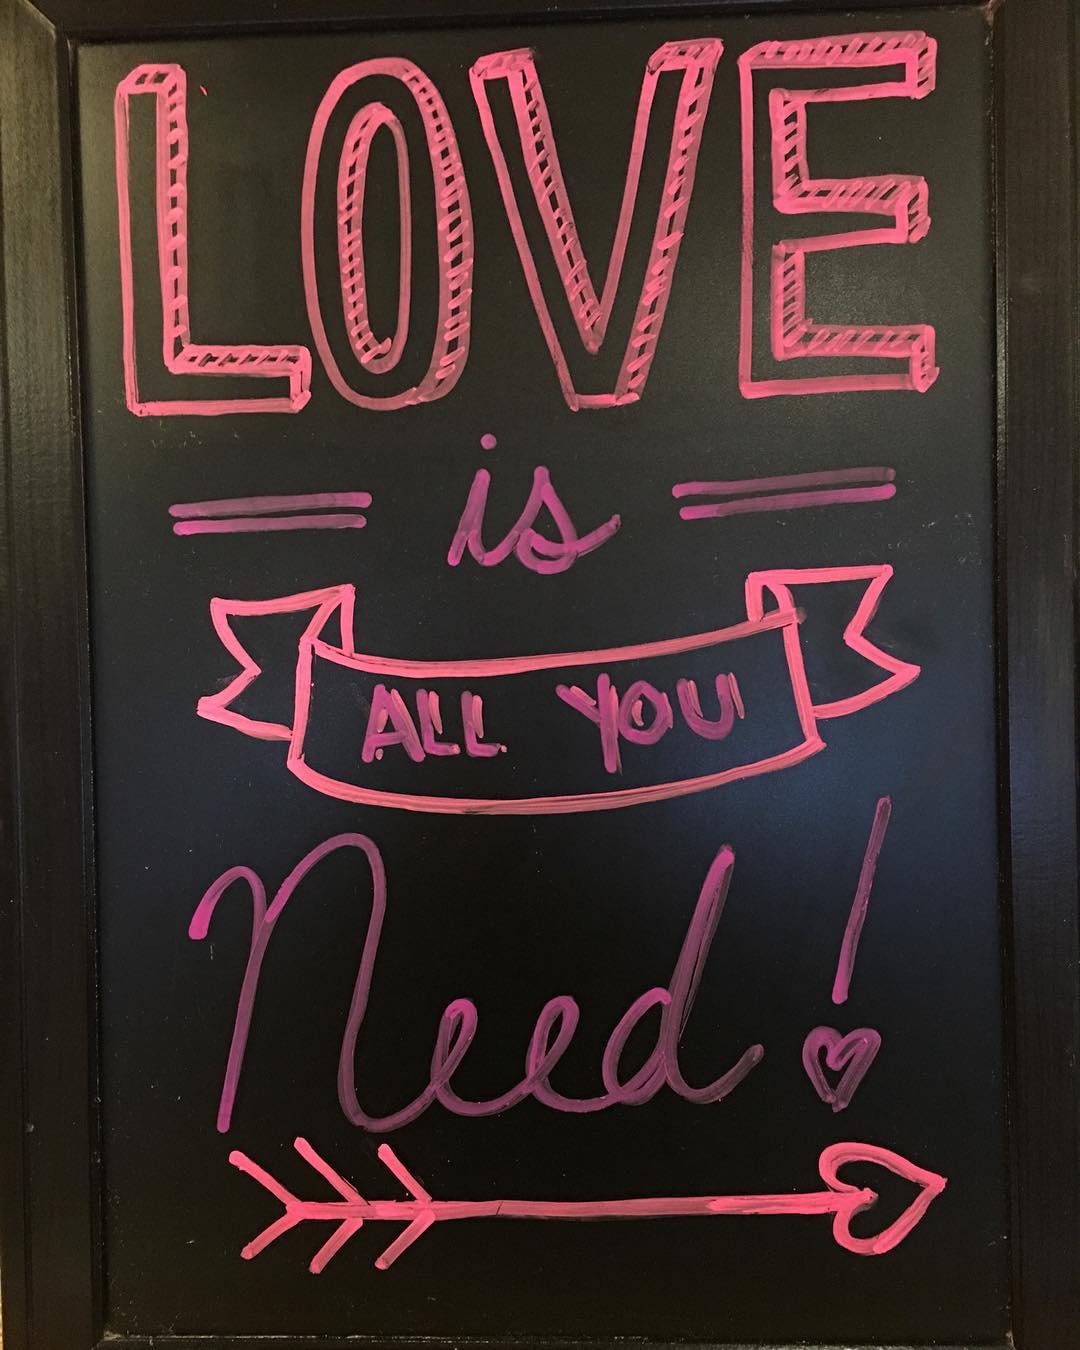 LOVE
is
ALL YOU
Need!